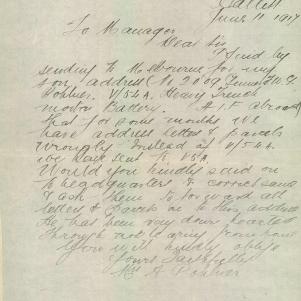 June 11 1917
To Manager
Dear Sir
Find by
sending to Melbourne for my
son address No 2609
V54A. Heavy Trench
Motor Battery. A.I.F. Abroad
that for some months we
have address letters & parcels
wrongly Instead of V54A.
we have sent to V5A.
Would you kindly send on
to headquarters & correct same
& ask them to forward all
letters & parcels on to this address
He has been very down hearted
through not hearing from home
You will kindly oblige
Yours Faithfully
Mrs A